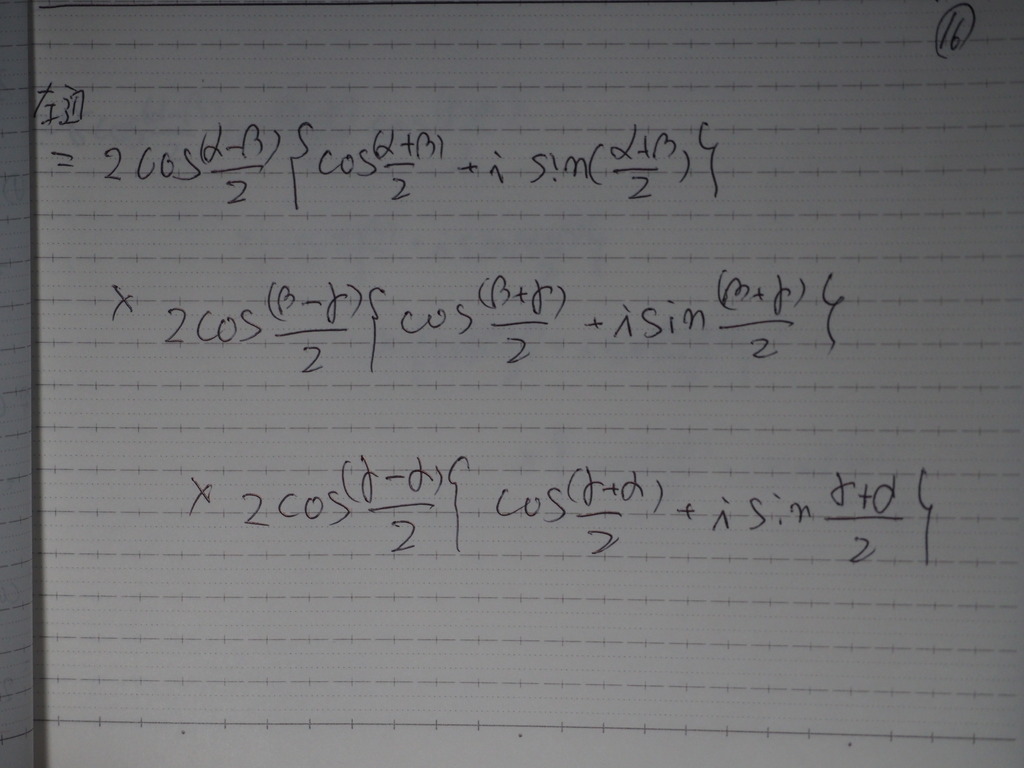 ⑯
与式
= 2cos (α-β)/2 { cos (α+β)/2 + i sin (α+β)/2 }
× 2cos (β-γ)/2 { cos (β+γ)/2 + i sin (β+γ)/2 }
× 2cos (γ-α)/2 { cos (γ+α)/2 + i sin γ+α/2 }